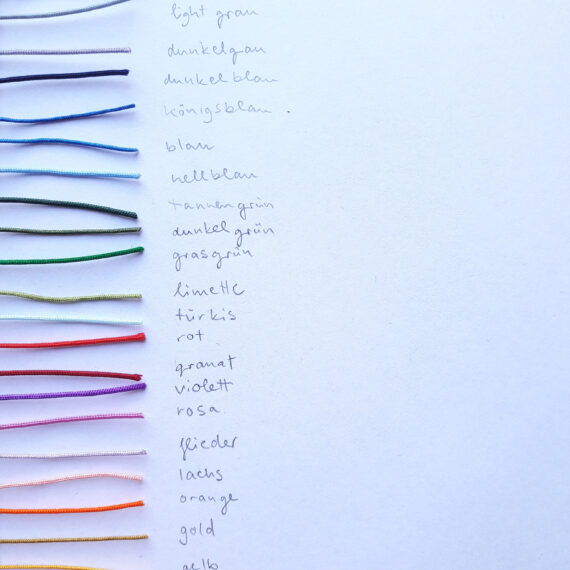 light grau
dunkelgrau
dunkelblau
königsblau .
blau
hellblau
tannengrün
dunkelgrün
grasgrün
limette
türkis
rot
granat
violett
rosa.
flieder
lachs
orange
gold
gelb